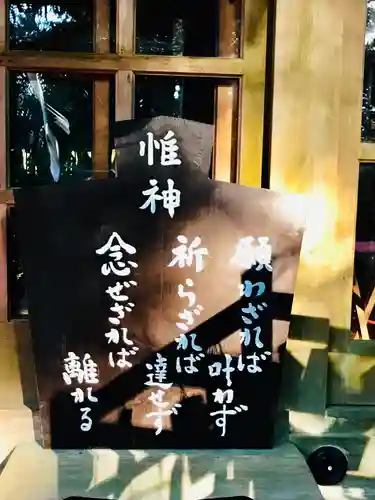 惟神
願わざれば叶わず
祈らざれば達せず
念ぜざれば離かる